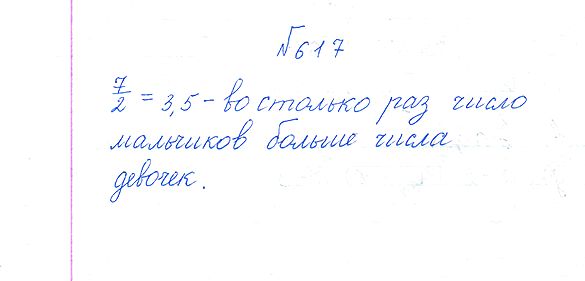 №617
7/2 = 3,5 - во столько раз число
мальчиков больше числа
девочек.